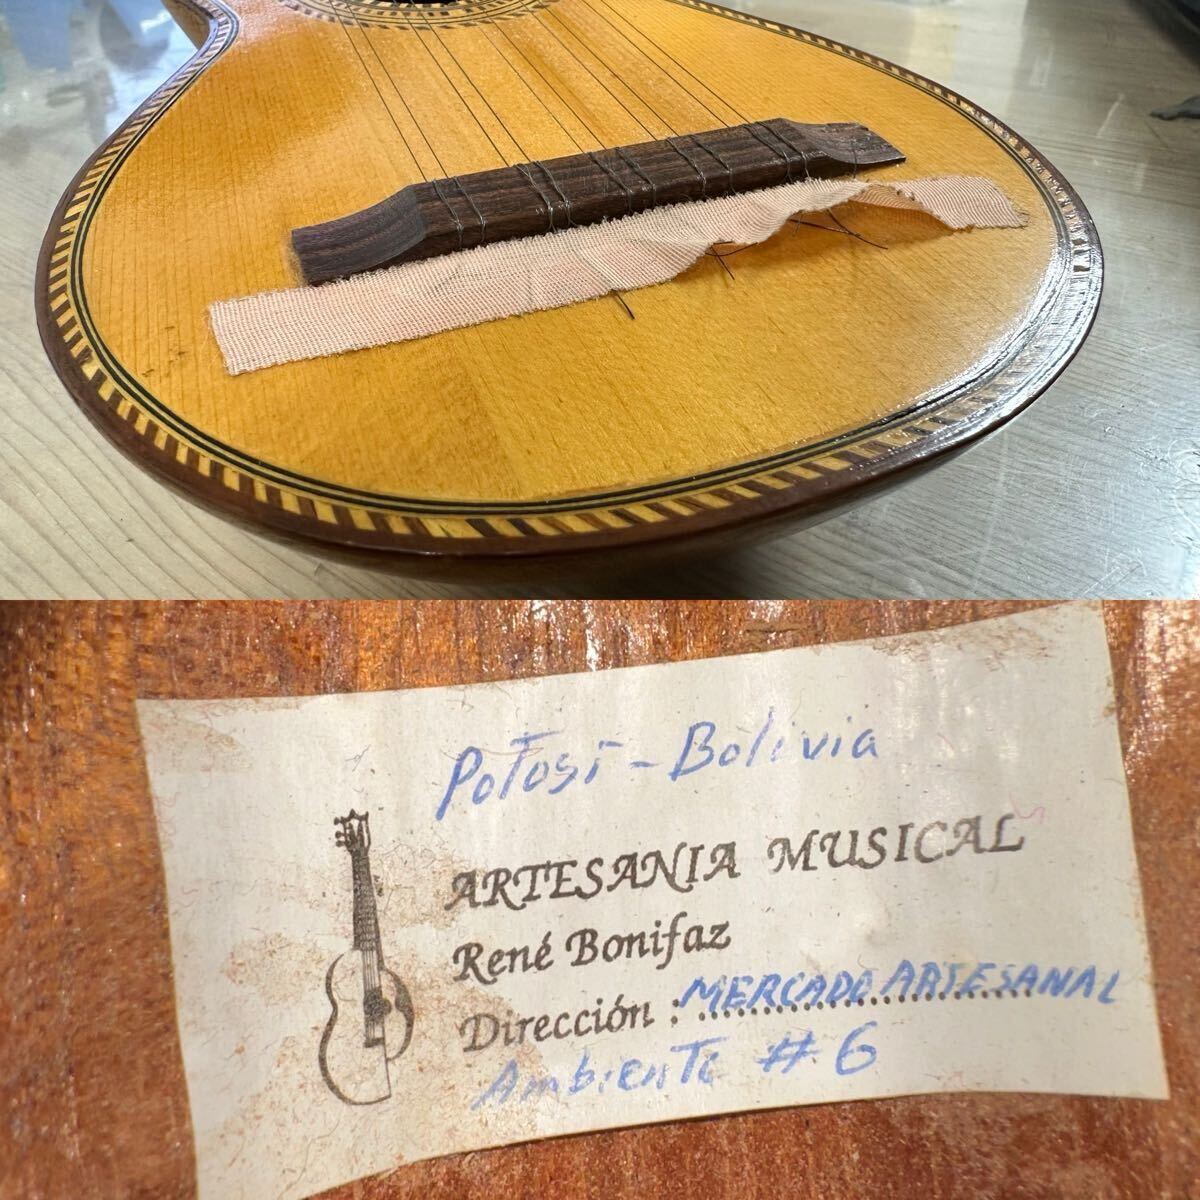 Potosí - Bolivia
ARTESANIA MUSICAL
René Bonifaz
Dirección : MERCADO ARTESANAL
Ambiente # 6